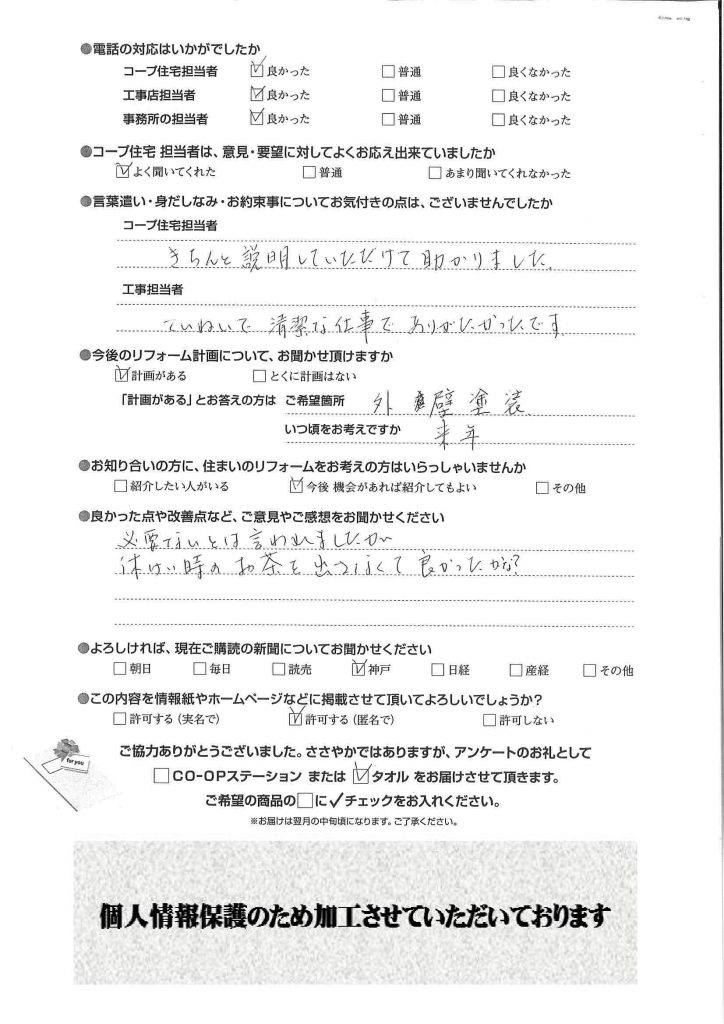 ●電話の対応はいかがでしたか
コープ住宅担当者 ☑良かった □普通 □良くなかった
工事店担当者 ☑良かった □普通 □良くなかった
事務所の担当者 ☑良かった □普通 □良くなかった
●コープ住宅 担当者は、意見・要望に対してよくお応え出来ていましたか
☑よく聞いてくれた □普通 □あまり聞いてくれなかった
●言葉遣い・身だしなみ・お約束事についてお気付きの点は、ございませんでしたか
コープ住宅担当者
きちんと説明していただけて助かりました。
工事担当者
ていねいで 清潔な仕事で ありがたかったです
●今後のリフォーム計画について、お聞かせ頂けますか
☑計画がある □とくに計画はない
「計画がある」とお答えの方は ご希望箇所 外壁塗装
いつ頃をお考えですか 来年
●お知り合いの方に、住まいのリフォームをお考えの方はいらっしゃいませんか
□紹介したい人がいる ☑今後 機会があれば紹介してもよい □その他
●良かった点や改善点など、ご意見やご感想をお聞かせください
必要ないとは言われましたが
時のお茶を出さなくて良かったかな?
●よろしければ、現在ご購読の新聞についてお聞かせください
□朝日 □毎日 □読売 ☑神戸 □日経 □産経 □その他
●この内容を情報紙やホームページなどに掲載させて頂いてよろしいでしょうか?
□許可する(実名で) ☑許可する(匿名で) □許可しない
for you
ご協力ありがとうございました。ささやかではありますが、アンケートのお礼として
□CO-OPステーション または ☑タオル をお届けさせて頂きます。
ご希望の商品の□に✓チェックをお入れください。
※お届けは翌月の中旬頃になります。ご了承ください。
個人情報保護のため加工させていただいております